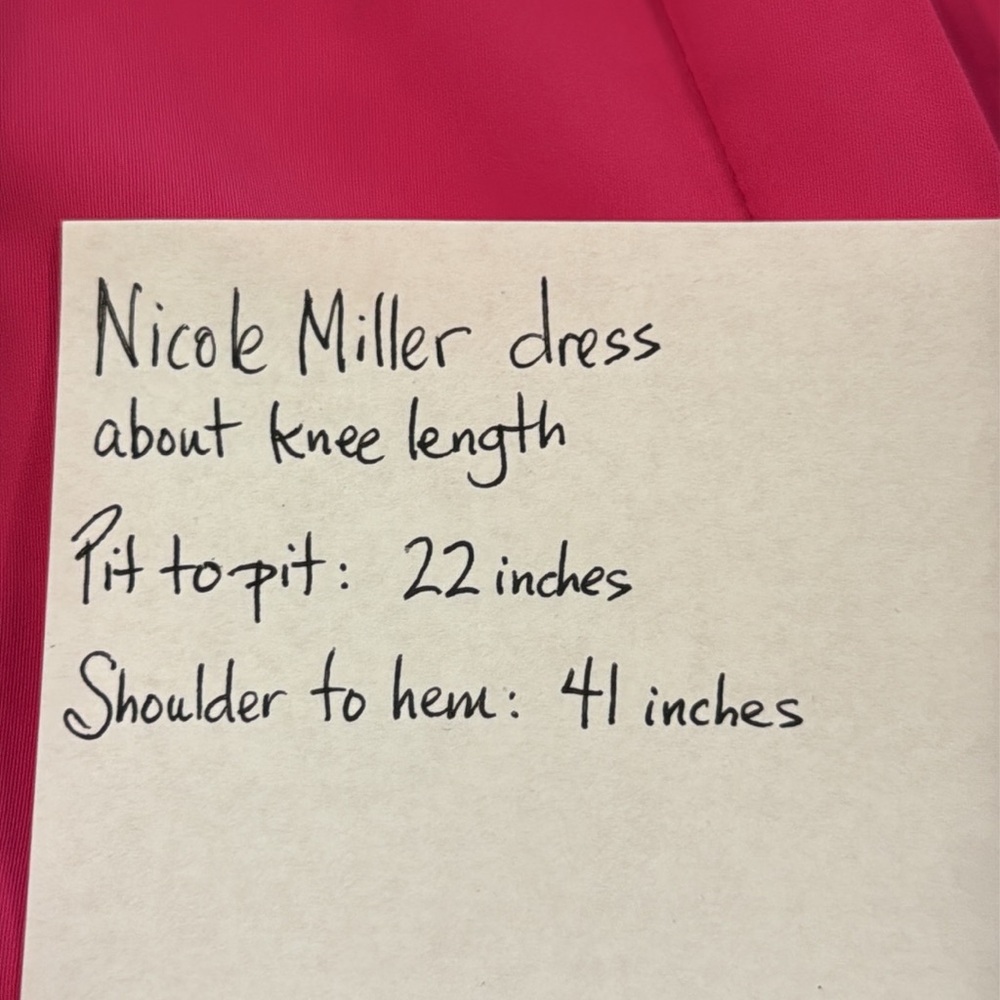 Nicole Miller dress
about knee length
Pit to pit: 22 inches
Shoulder to hem: 41 inches